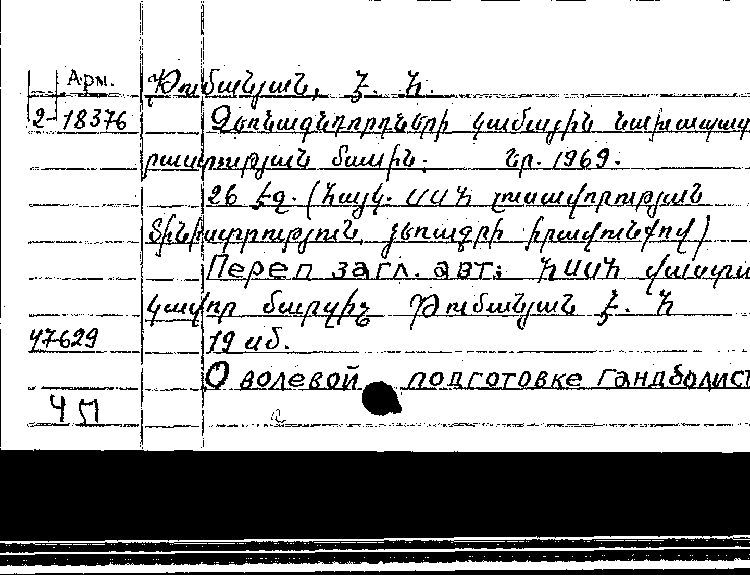 Арм. Թումանյան, Է. Հ.
2-18376 Ձեռնագնդորդների կամային նախապատ
րաստության մասին: Եր. 1969.
26 էջ. (Հայկ. ՍՍՀ լուսավորության
մինիստրություն, ձեռագրի իրավունքով)
Переп загл. авт: ՀՍՍՀ վաստա
կավոր մարզիչ Թումանյան Է. Հ
47629 19 սմ.
О волевой подготовке гандболист
ЧП